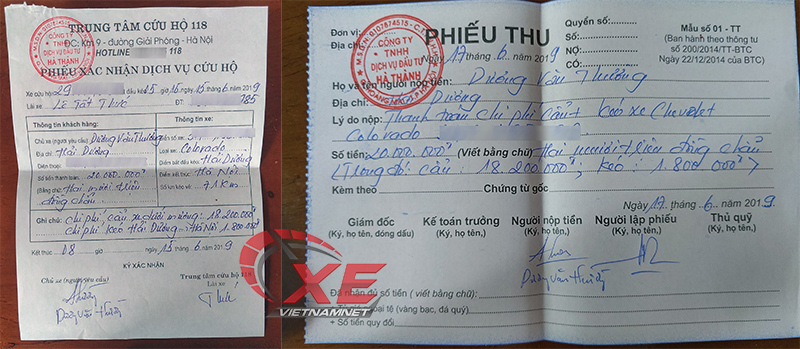 TRUNG TÂM CỨU HỘ 118
ĐC: Km 9 - đường Giải Phóng - Hà Nội
HOTLINE 118
PHIẾU XÁC NHẬN DỊCH VỤ CỨU HỘ
CÔNG TY
TNHH
DỊCH VỤ ĐẦU TƯ
HÀ THÀNH
Xe cứu hộ: 29
ngày 15 tháng 6 năm 2019
Lái xe: Lê Tất Thức ĐT: 785
Thông tin khách hàng:
Chủ xe (người yêu cầu) Dương Văn Thưởng
Địa chỉ: Hải Dương
Điện thoại:
Số tiền thanh toán: 20.000.000đ
(Bằng chữ) Hai mươi triệu
đồng chẵn
Thông tin xe:
Loại xe: Colorado
Hải Dương
Hà Nội
71 Km
Ghi chú: chi phí cẩu xe dưới mương: 18.200.000đ
chi phí kéo Hải Dương - Hà Nội 1.800.000đ
Kết thúc 08 giờ ngày 15 tháng 6 năm 2019
KÝ XÁC NHẬN
Chủ xe (người yêu cầu)
Trung tâm cứu hộ 118
Lái xe
XE
VIETNAMNET
Đơn vị:
Địa chỉ:
M.S.D.N: 0107574515
CÔNG TY
TNHH
DỊCH VỤ ĐẦU TƯ
HÀ THÀNH
PHIẾU THU
Ngày 17 tháng 6 năm 2019
Quyển số:
Số:
NỢ:
CÓ:
Mẫu số 01 - TT
(Ban hành theo thông tư
số 200/2014/TT-BTC
Ngày 22/12/2014 của BTC)
Họ và tên người nộp tiền: Dương Văn Thưởng
Địa chỉ: Hải Dương
Lý do nộp: Thanh toán chi phí cẩu + kéo xe Chevrolet
Colorado
Số tiền: 20.000.000đ (Viết bằng chữ) Hai mươi triệu đồng chẵn
(Trong đó: cẩu: 18.200.000đ; kéo: 1.800.000đ)
Kèm theo: Chứng từ gốc
Ngày 17 tháng 6 năm 2019
Giám đốc
(Ký, họ tên, đóng dấu)
Kế toán trưởng
(Ký, họ tên,)
Người nộp tiền
(Ký, họ tên,)
Người lập phiếu
(Ký, họ tên,)
Thủ quỹ
(Ký, họ tên,)
Đã nhận đủ số tiền (viết bằng chữ):
ngoại tệ (vàng bạc, đá quý)
+ Số tiền quy đổi